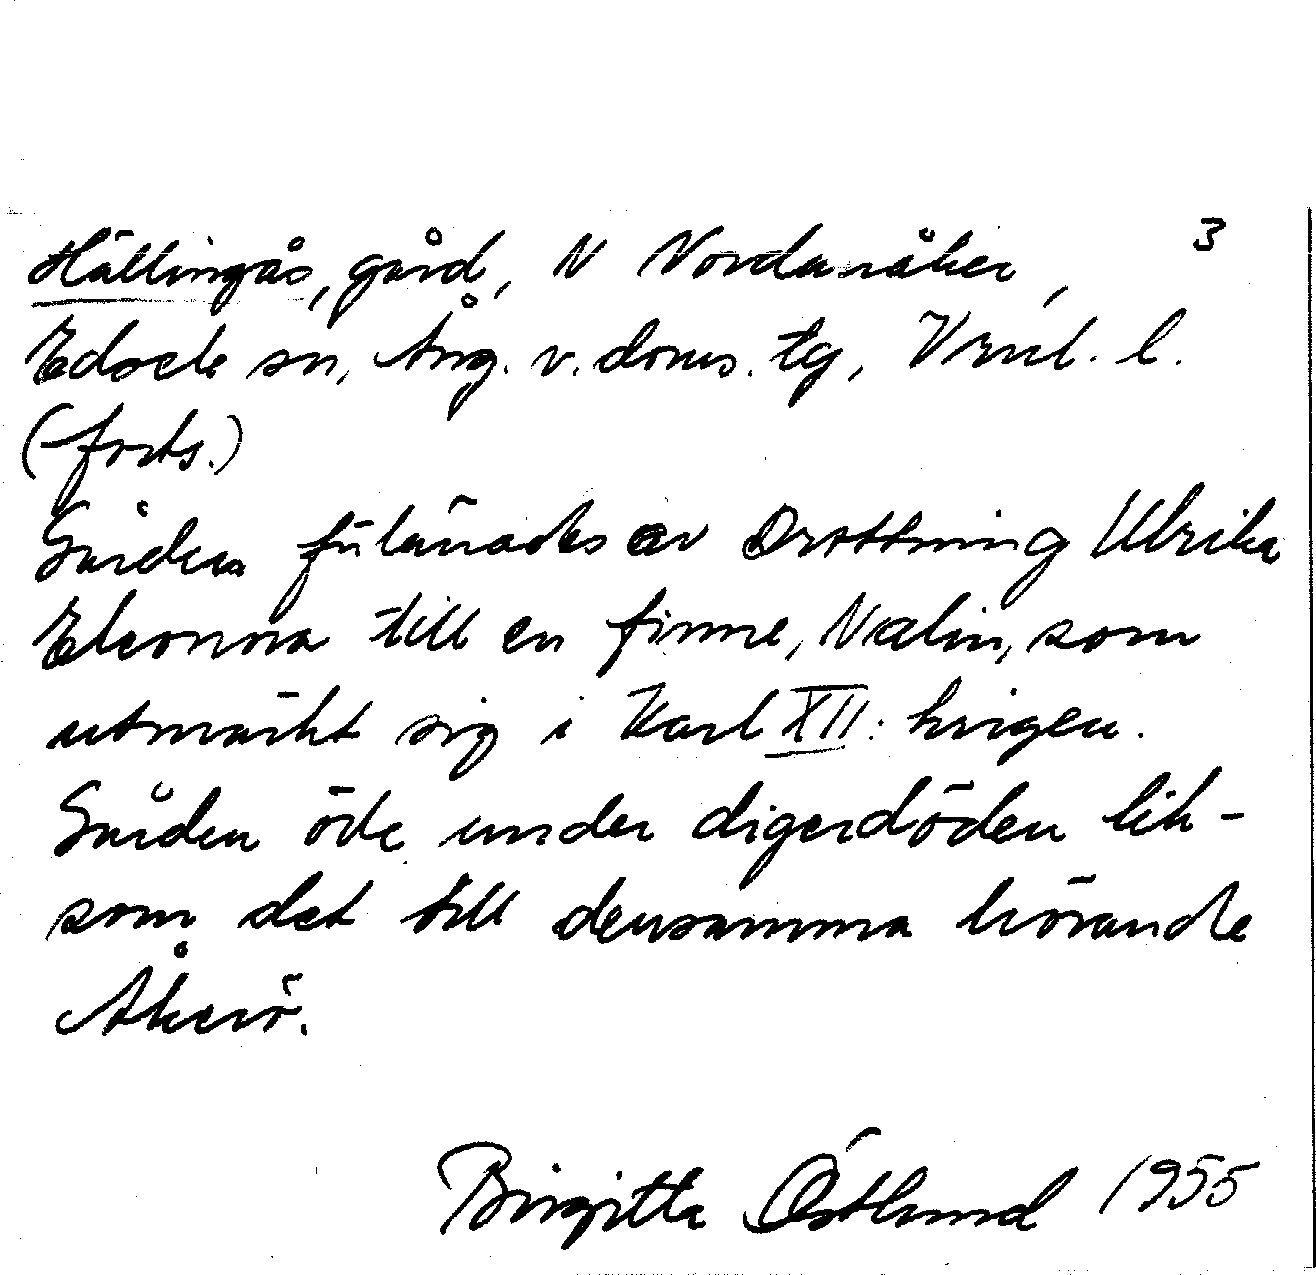 Hällingås, gård, N Nordanåker, 3
Edsele sn, Ång. v. doms. tg, Vrnl. l.
(forts.)
Gården förlänades av Drottning Ulrika
Eleonora till en finne, Nalin, som
utmärkt sig i Karl XII: krigen.
Gården öde under digerdöden lik-
som det till densamma hörande
Åkerö.
Birgitta Östlund 1955